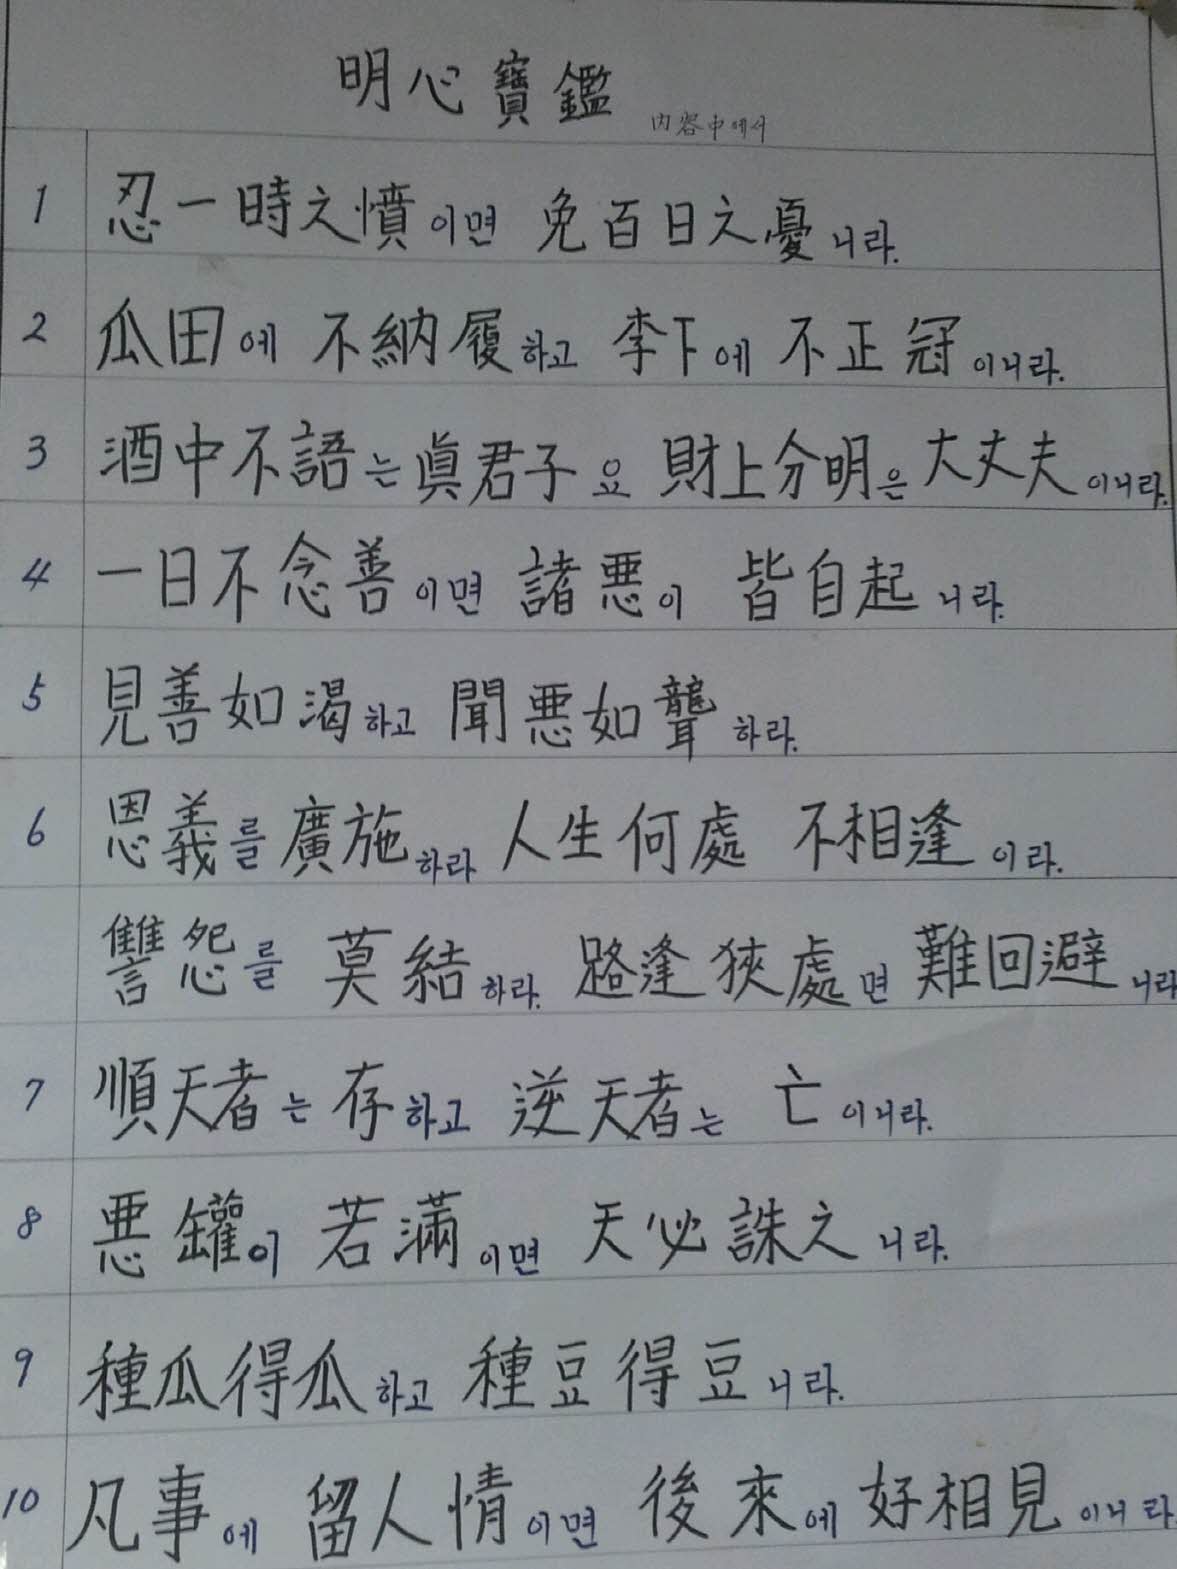 明心寶鑑 內容中에서
1 忍一時之憤이면 免百日之憂니라.
2 瓜田에 不納履하고 李下에 不正冠이니라.
3 酒中不語는 眞君子요 財上分明은 大丈夫이니라.
4 一日不念善이면 諸悪이 皆自起니라.
5 見善如渴하고 聞悪如聾하라.
6 恩義를 廣施하라 人生何處 不相逢이라.
讐怨를 莫結하라. 路逢狹處면 難回避니라
7 順天者는 存하고 逆天者는 亡이니라.
8 悪鑵이 若滿이면 天必誅之니라.
9 種瓜得瓜하고 種豆得豆니라.
10 凡事에 留人情이면 後來에 好相見이니라.